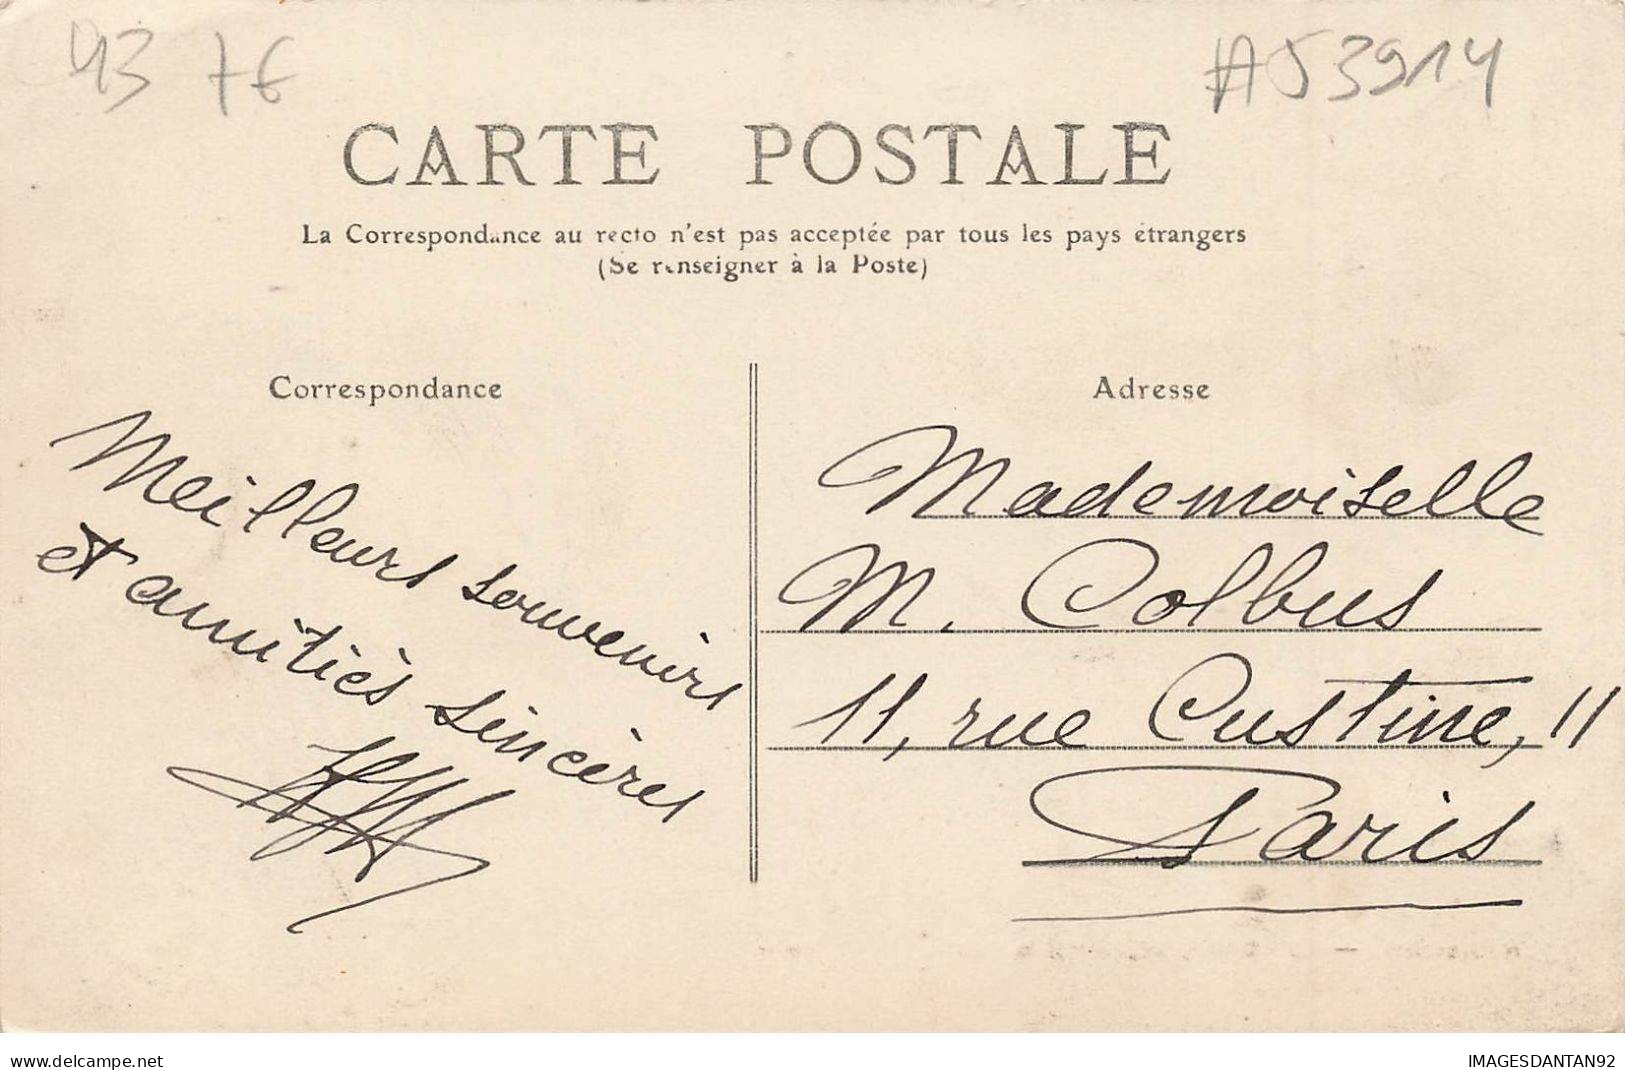 43 76
A53914
CARTE POSTALE
La Correspondance au recto n'est pas acceptée par tous les pays étrangers
(Se renseigner à la Poste)
Correspondance
Meilleurs souvenirs
et amitiès sincères
Adresse
Mademoiselle
M. Colbus
11, rue Custine, 11
Paris
www.delcampe.net
IMAGESDANTAN92